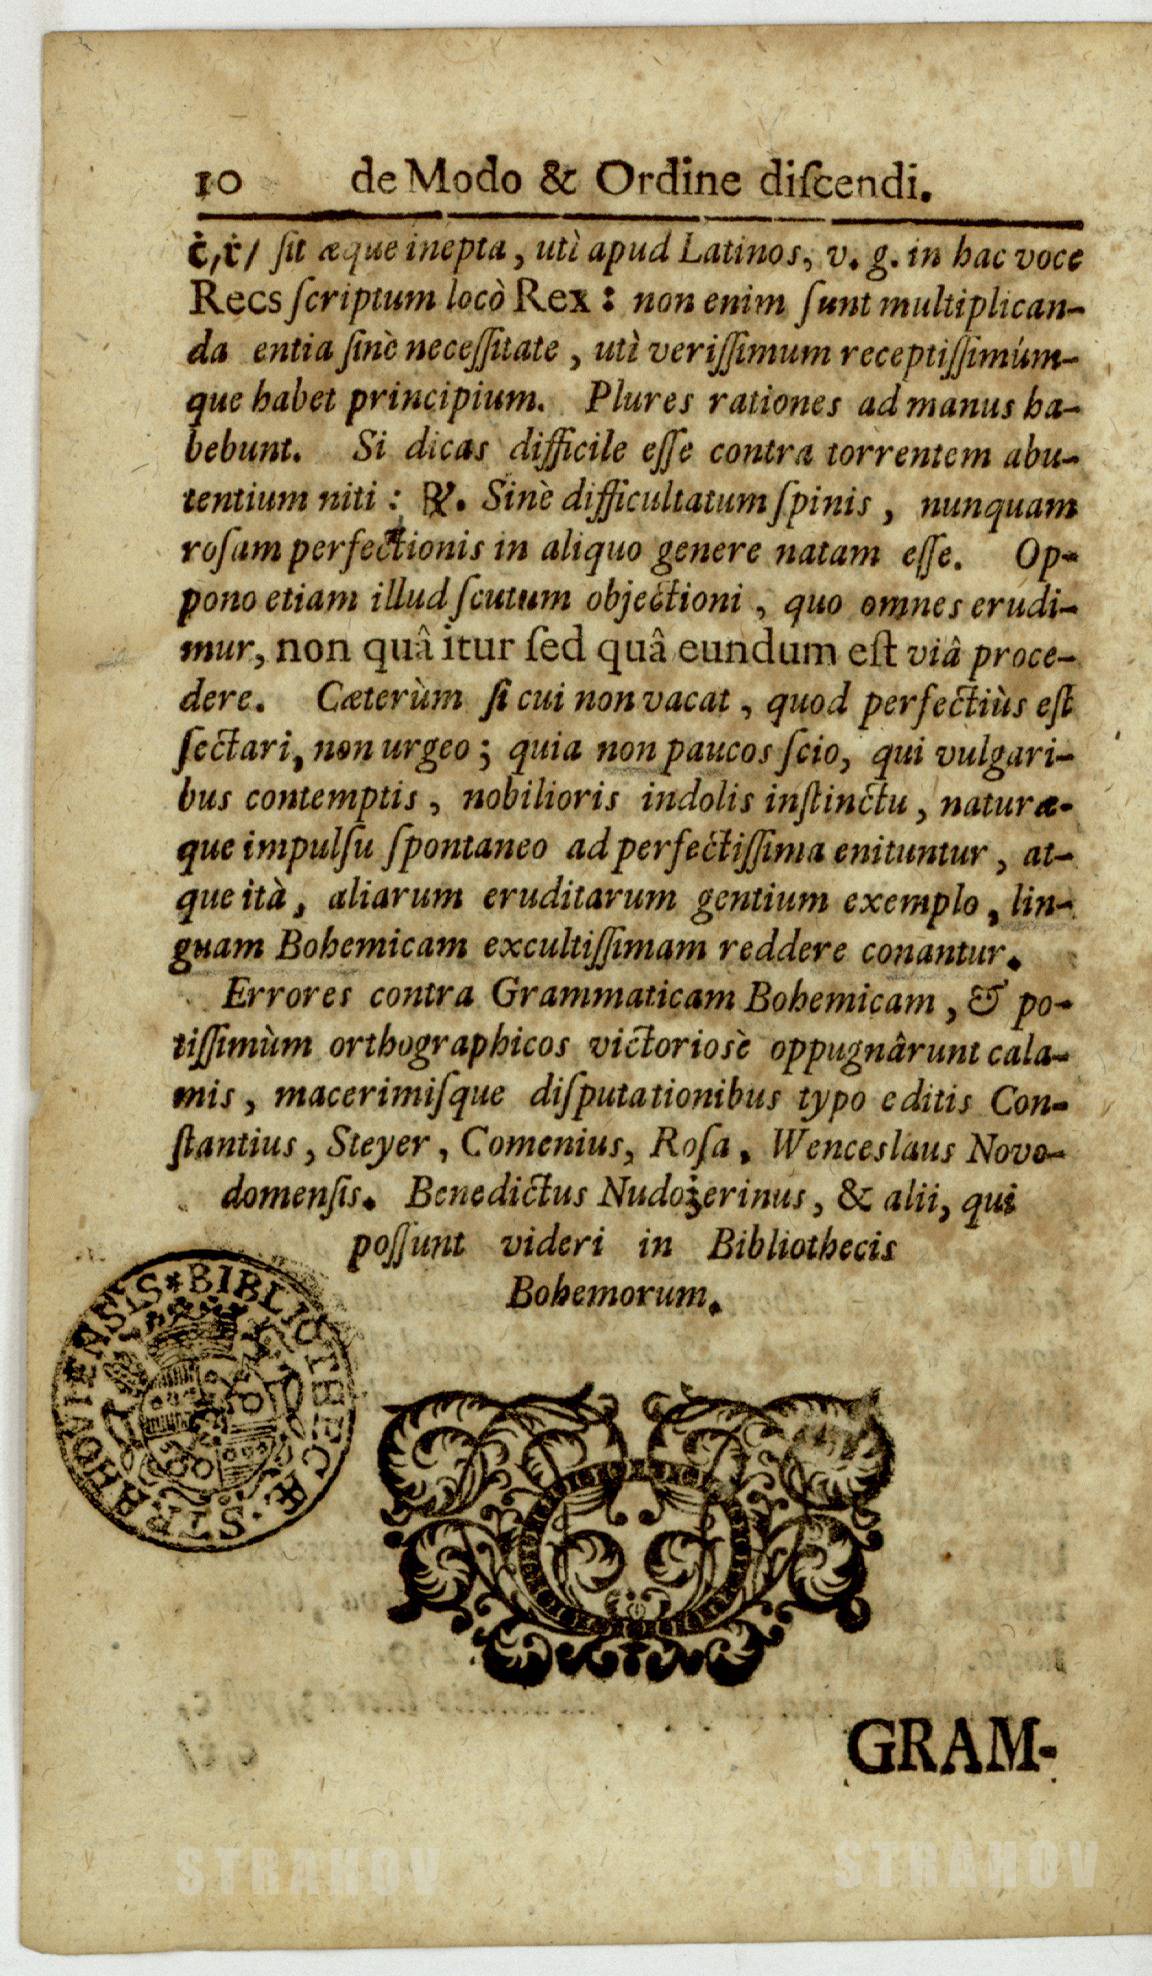 10 de Modo & Ordine diſcendi.
ċ, ċ/ ſit æque inepta, utì apud Latinos, v. g. in hac voce
Recs ſcriptum locò Rex: non enim ſunt multiplican-
da entia ſinè neceſſitate, utì veriſſimum receptiſſimúm-
que habet principium. Plures rationes ad manus ha-
bebunt. Si dicas difficile eſſe contra torrentem abu-
tentium niti: ℟. Sinè difficultatum ſpinis, nunquam
roſam perfectionis in aliquo genere natam eſſe. Op-
pono etiam illud ſcutum objectioni, quo omnes erudi-
mur, non quâ itur ſed quâ eundum eſt viâ proce-
dere. Cæterùm ſi cui non vacat, quod perfectiùs eſt
ſectari, non urgeo; quia non paucos ſcio, qui vulgari-
bus contemptis, nobilioris indolis inſtinctu, naturæ-
que impulſu ſpontaneo ad perfectiſſima enituntur, at-
que ità, aliarum eruditarum gentium exemplo, lin-
guam Bohemicam excultiſſimam reddere conantur.
Errores contra Grammaticam Bohemicam, & po-
tiſſimùm orthographicos victoriosè oppugnârunt cala-
mis, macerimiſque diſputationibus typo editis Con-
ſtantius, Steyer, Comenius, Roſa, Wenceslaus Novo-
domenſis. Benedictus Nudożerinus, & alii, qui
poſſunt videri in Bibliothecis
Bohemorum.
BIBLIOTHECÆ · STRAHOVIENSIS *
GRAM-
STRAHOV STRAHOV